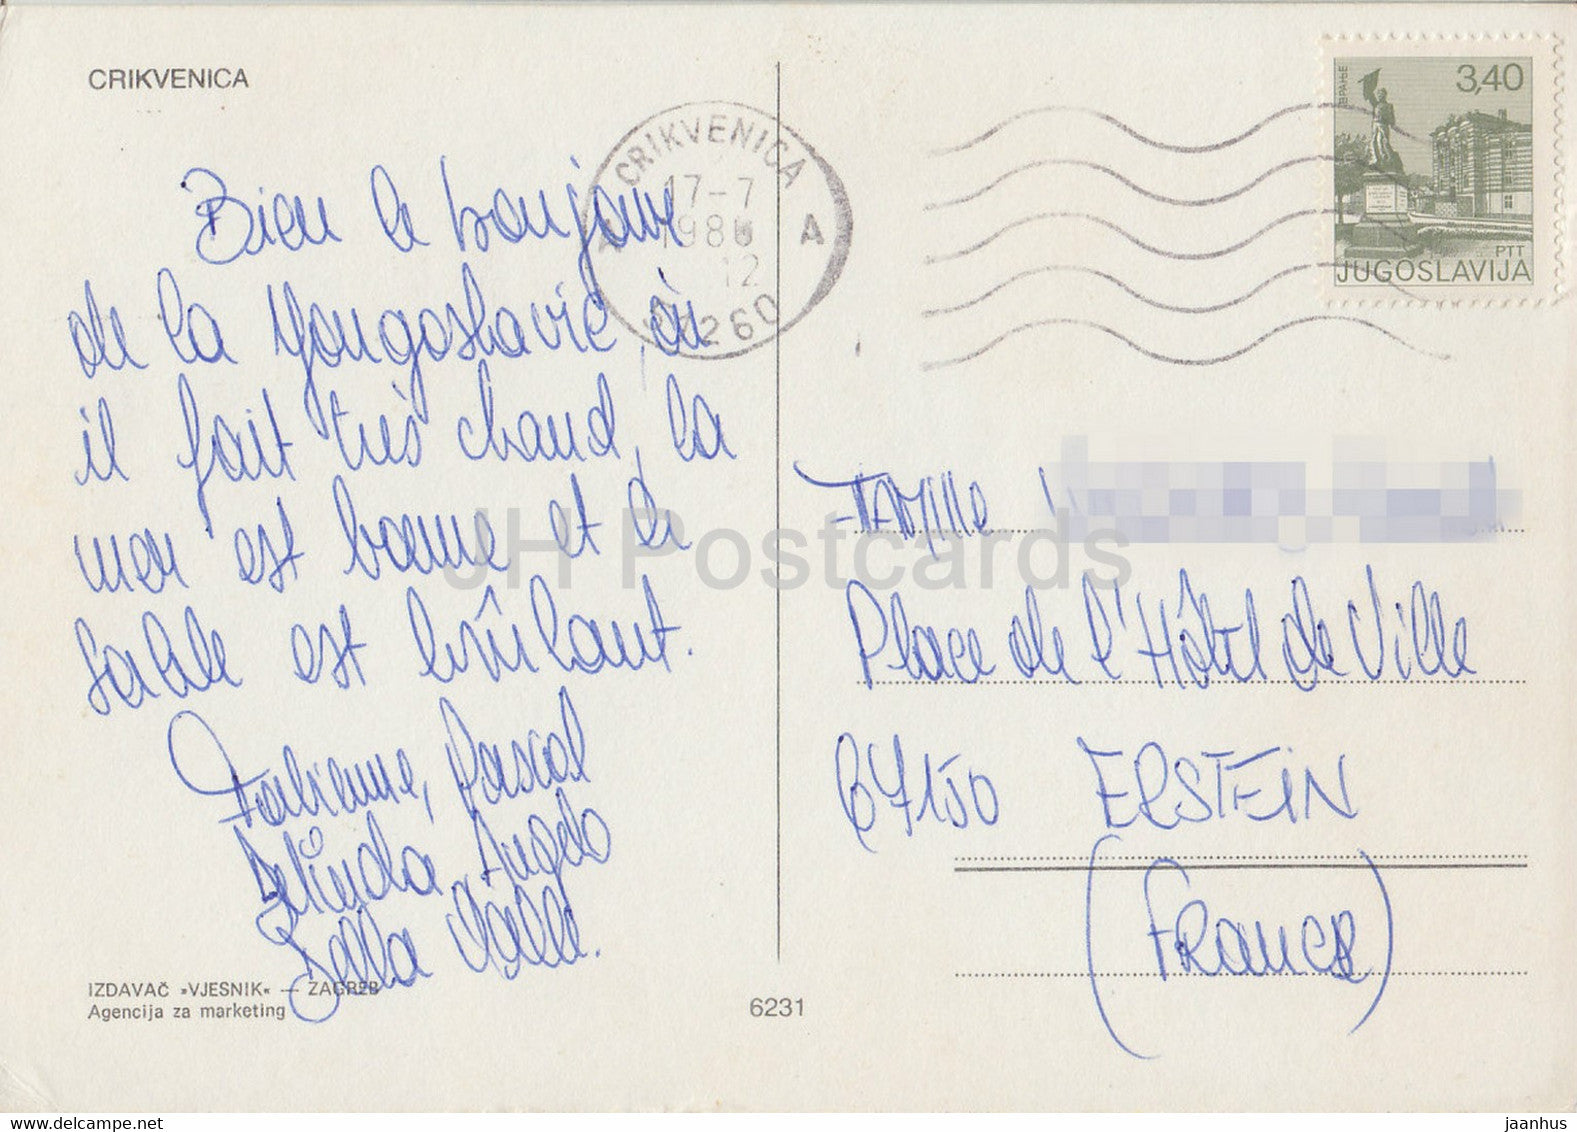 CRIKVENICA
Bien le bonjour
de la Yougoslavie, où
il fait très chaud, la
mer est bonne et le
sable est brûlant.
Fabienne, Pascal
Angelo
Della Valle.
IZDAVAČ »VJESNIK« — ZAGREB
Agencija za marketing
6231
CRIKVENICA
17-7
1986
12
A A
51260
ВРАЊЕ
3,40
PTT
JUGOSLAVIJA
FAMille
Place de l'Hôtel de Ville
67150 ERSTEIN
(FRANCE)
JH Postcards
jaanhus